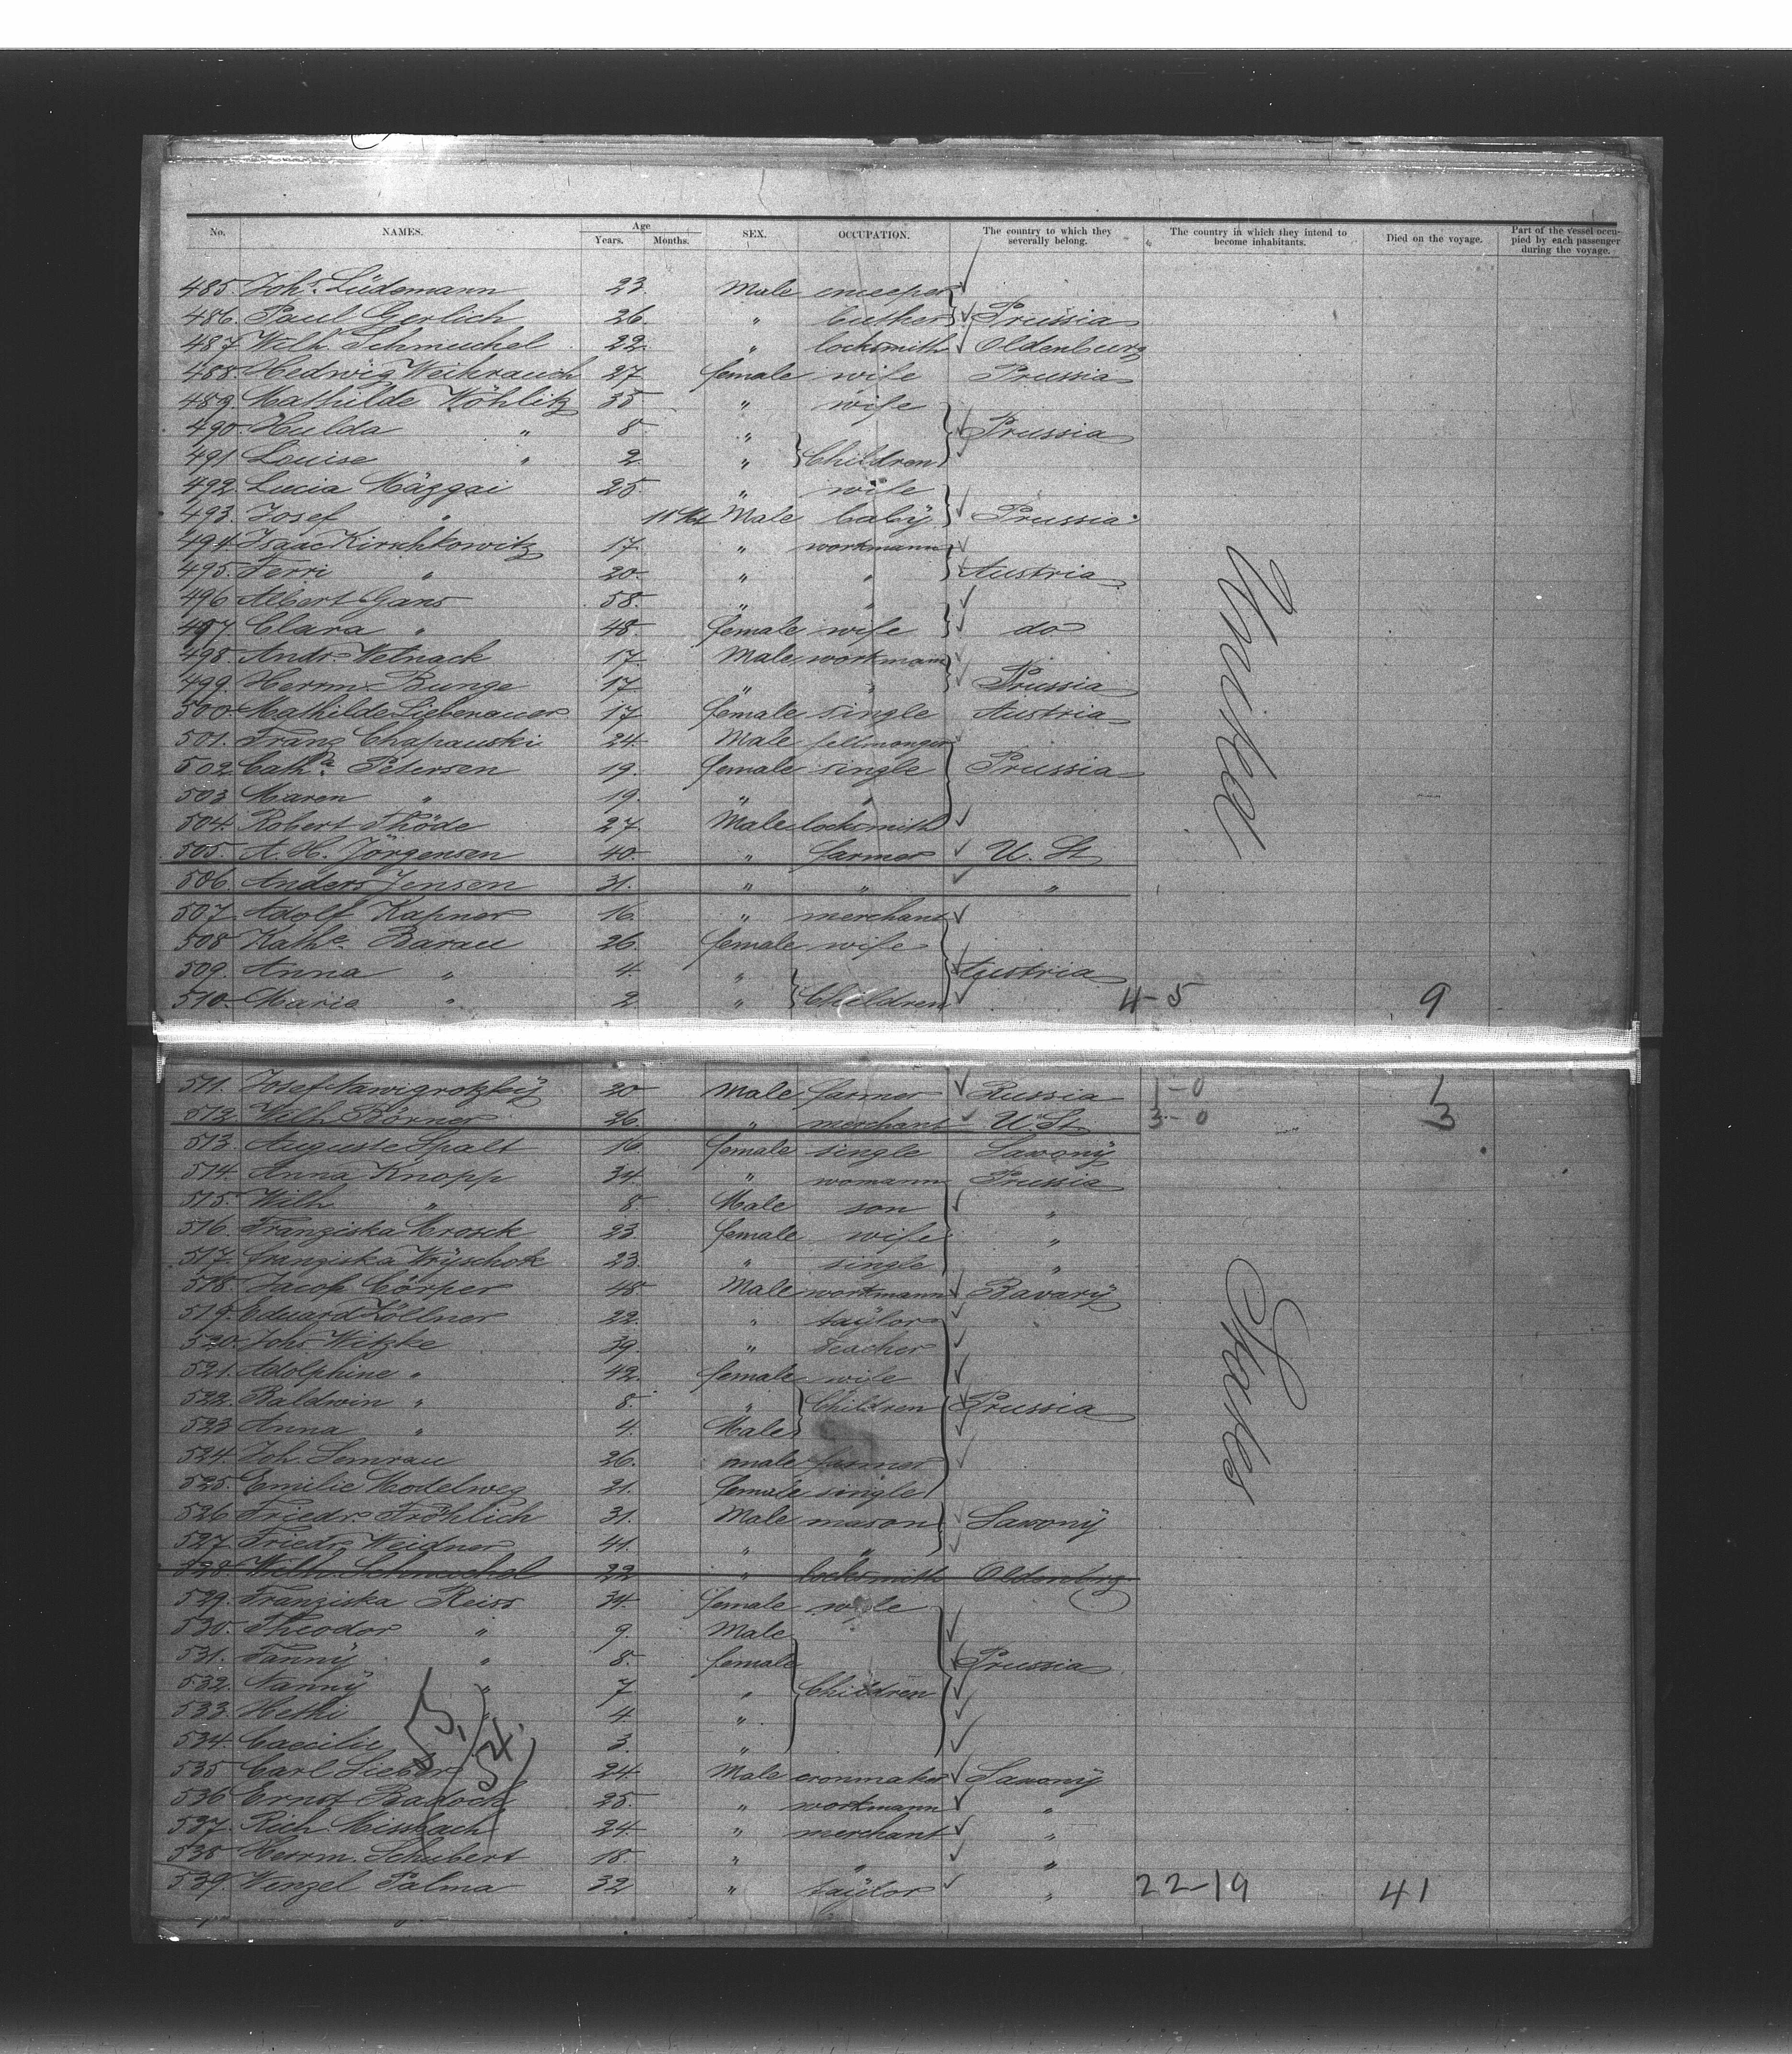 No. NAMES. Age Years. Months. SEX. OCCUPATION. The country to which they severally belong. The country in which they intend to become inhabitants. Died on the voyage. Part of the vessel occupied by each passenger during the voyage.
485. Joh.s Lüdemann 23. Male
486. Paul Gerlich 26. " Prussia
487 Wilh. Schmuchel 22. " locksmith Oldenburg
488. Hedwig Weihrauch 27 female wife Prussia
489. Mathilde Wöhlitz 35 " wife
490. Hulda " 8 " Prussia
491 Louise " 2 " Children
492. Lucia Mäzgai 25. " wife
493. Josef " 11 Mt Male baby Prussia
494 Isaac Kirschkowitz 17. " workmann
495. Ferri " 20. " " Austria
496 Albert Gans 58. " "
497 Clara " 48. female wife do
498. Andr. Wetnack 17. Male workmann
499. Herrm. Bunge 17 " " Prussia
500 Mathilde Liebenauer 17 female single Austria
501. Franz Chapauski 24. Male fellmonger
502 Cath.a Petersen 19. female single Prussia
503 Maren " 19. " "
504. Robert Thöde 27 Male locksmith
505 A. H. Jörgensen 40. " farmer U. St
506. Anders Jensen 31. " " "
507. Adolf Kapner 16. " merchant
508 Kath.e Barau 26. female wife
509. Anna " 4. " Austria
510. Marie " 2 " Children 4-5 9
511. Josef Nawigrotzky 20 Male farmer Russia 1-0 1
512 Wilh. Börner 26. " merchant U. St 3-0 3
513. Auguste Spalt 16 female single Saxony
514. Anna Knopp 34. " womann Prussia
515. Wilh " 8 Male son "
516. Franziska Mrosck 23 female wife "
517. Franziska Wryschok 23. " single "
518. Jacob Cörper 48 Male workmann Bavary
519. Eduard Zöllner 22. " taylor
520. Johs Witzke 39. " teacher
521. Adolphine " 42. female wife
522. Baldwin " 8. " Children Prussia
523 Anna " 4. Male
524. Joh. Semrau 26. male farmer
525. Emilie Modelweg 21. female single
526 Friedr. Fröhlich 31. Male mason Saxony
527. Friedr. Weidner 41. " "
528. Wilh. Schmuchel 22 " locksmith Oldenbrg
529. Franziska Reiss 34. female wife
530. Theodor " 9. Male
531. Fanny " 8. female Prussia
532. Nanny " 7 " Children
533. Hethi " 4 "
534. Caecilie 3. "
535 Carl Lieber 24. Male Saxony
536 Ernst Badock 25. " workmann "
537. Rich. Missbach 24. " merchant "
538 Herrm. Schubert 18. " " "
539. Wenzel Palma 32 " taylor " 22-19 41
United
States